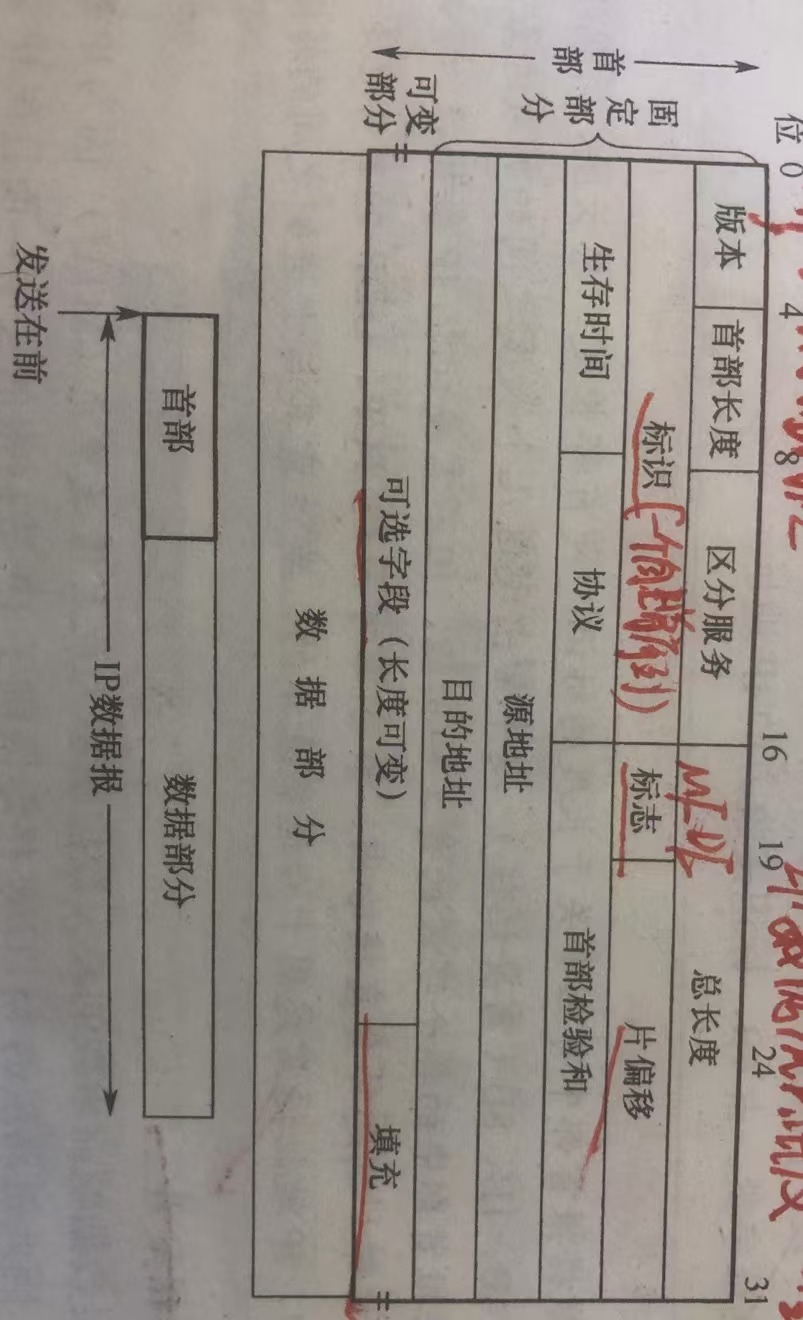 位 0 4 8 16 19 24 31
版本 首部长度 区分服务 总长度
标识 标志 片偏移
生存时间 协议 首部检验和
源地址
目的地址
可选字段（长度可变） 填充
数据部分
首部
固定部分
可变部分
首部 数据部分
IP数据报
发送在前
MF DF